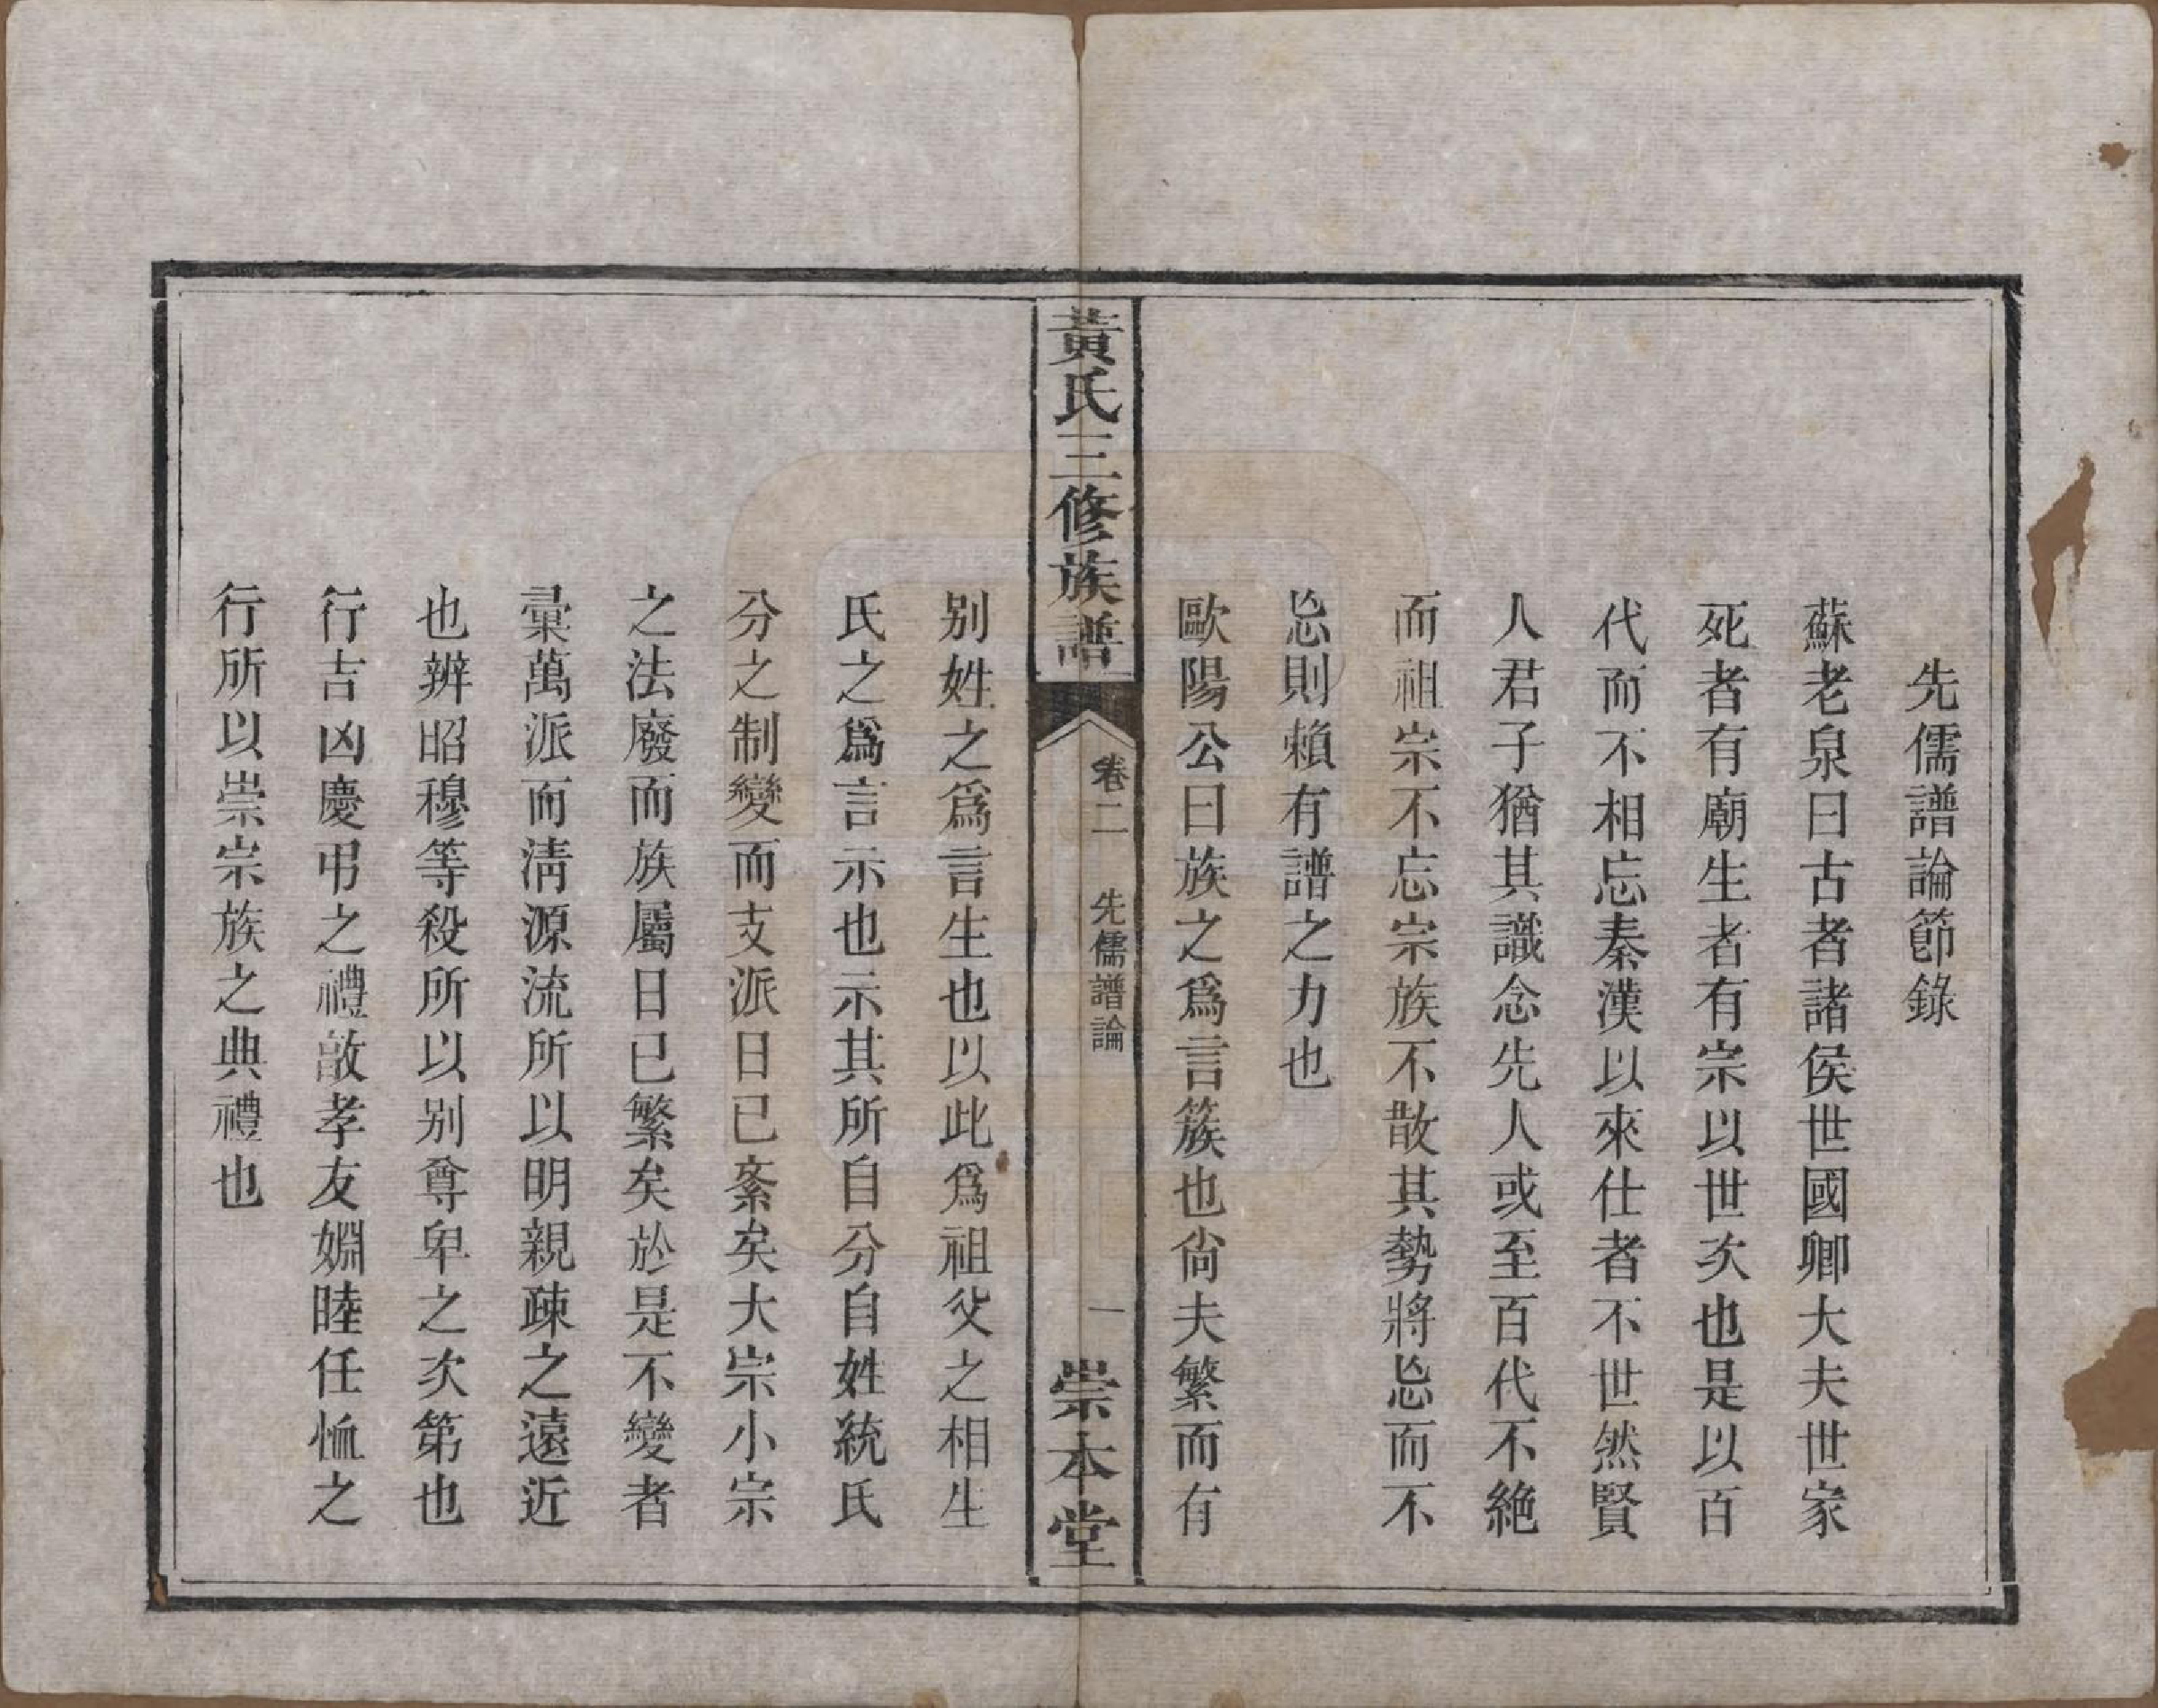 先儒譜論節錄
蘇老泉曰古者諸侯世國卿大夫世家
死者有廟生者有宗以世次也是以百
代而不相忘秦漢以來仕者不世然賢
人君子猶其識念先人或至百代不絶
而祖宗不忘宗族不散其勢將怱而不
怱則賴有譜之力也
歐陽公曰族之爲言簇也尙夫繁而有
黃氏三修族譜
卷二
先儒譜論
一
崇本堂
别姓之爲言生也以此爲祖父之相生
氏之爲言示也示其所自分自姓統氏
分之制變而支派日已紊矣大宗小宗
之法廢而族屬日已繁矣於是不變者
彙萬派而淸源流所以明親疎之遠近
也辨昭穆等殺所以别尊卑之次第也
行吉凶慶弔之禮敌孝友婣睦任恤之
行所以崇宗族之典禮也